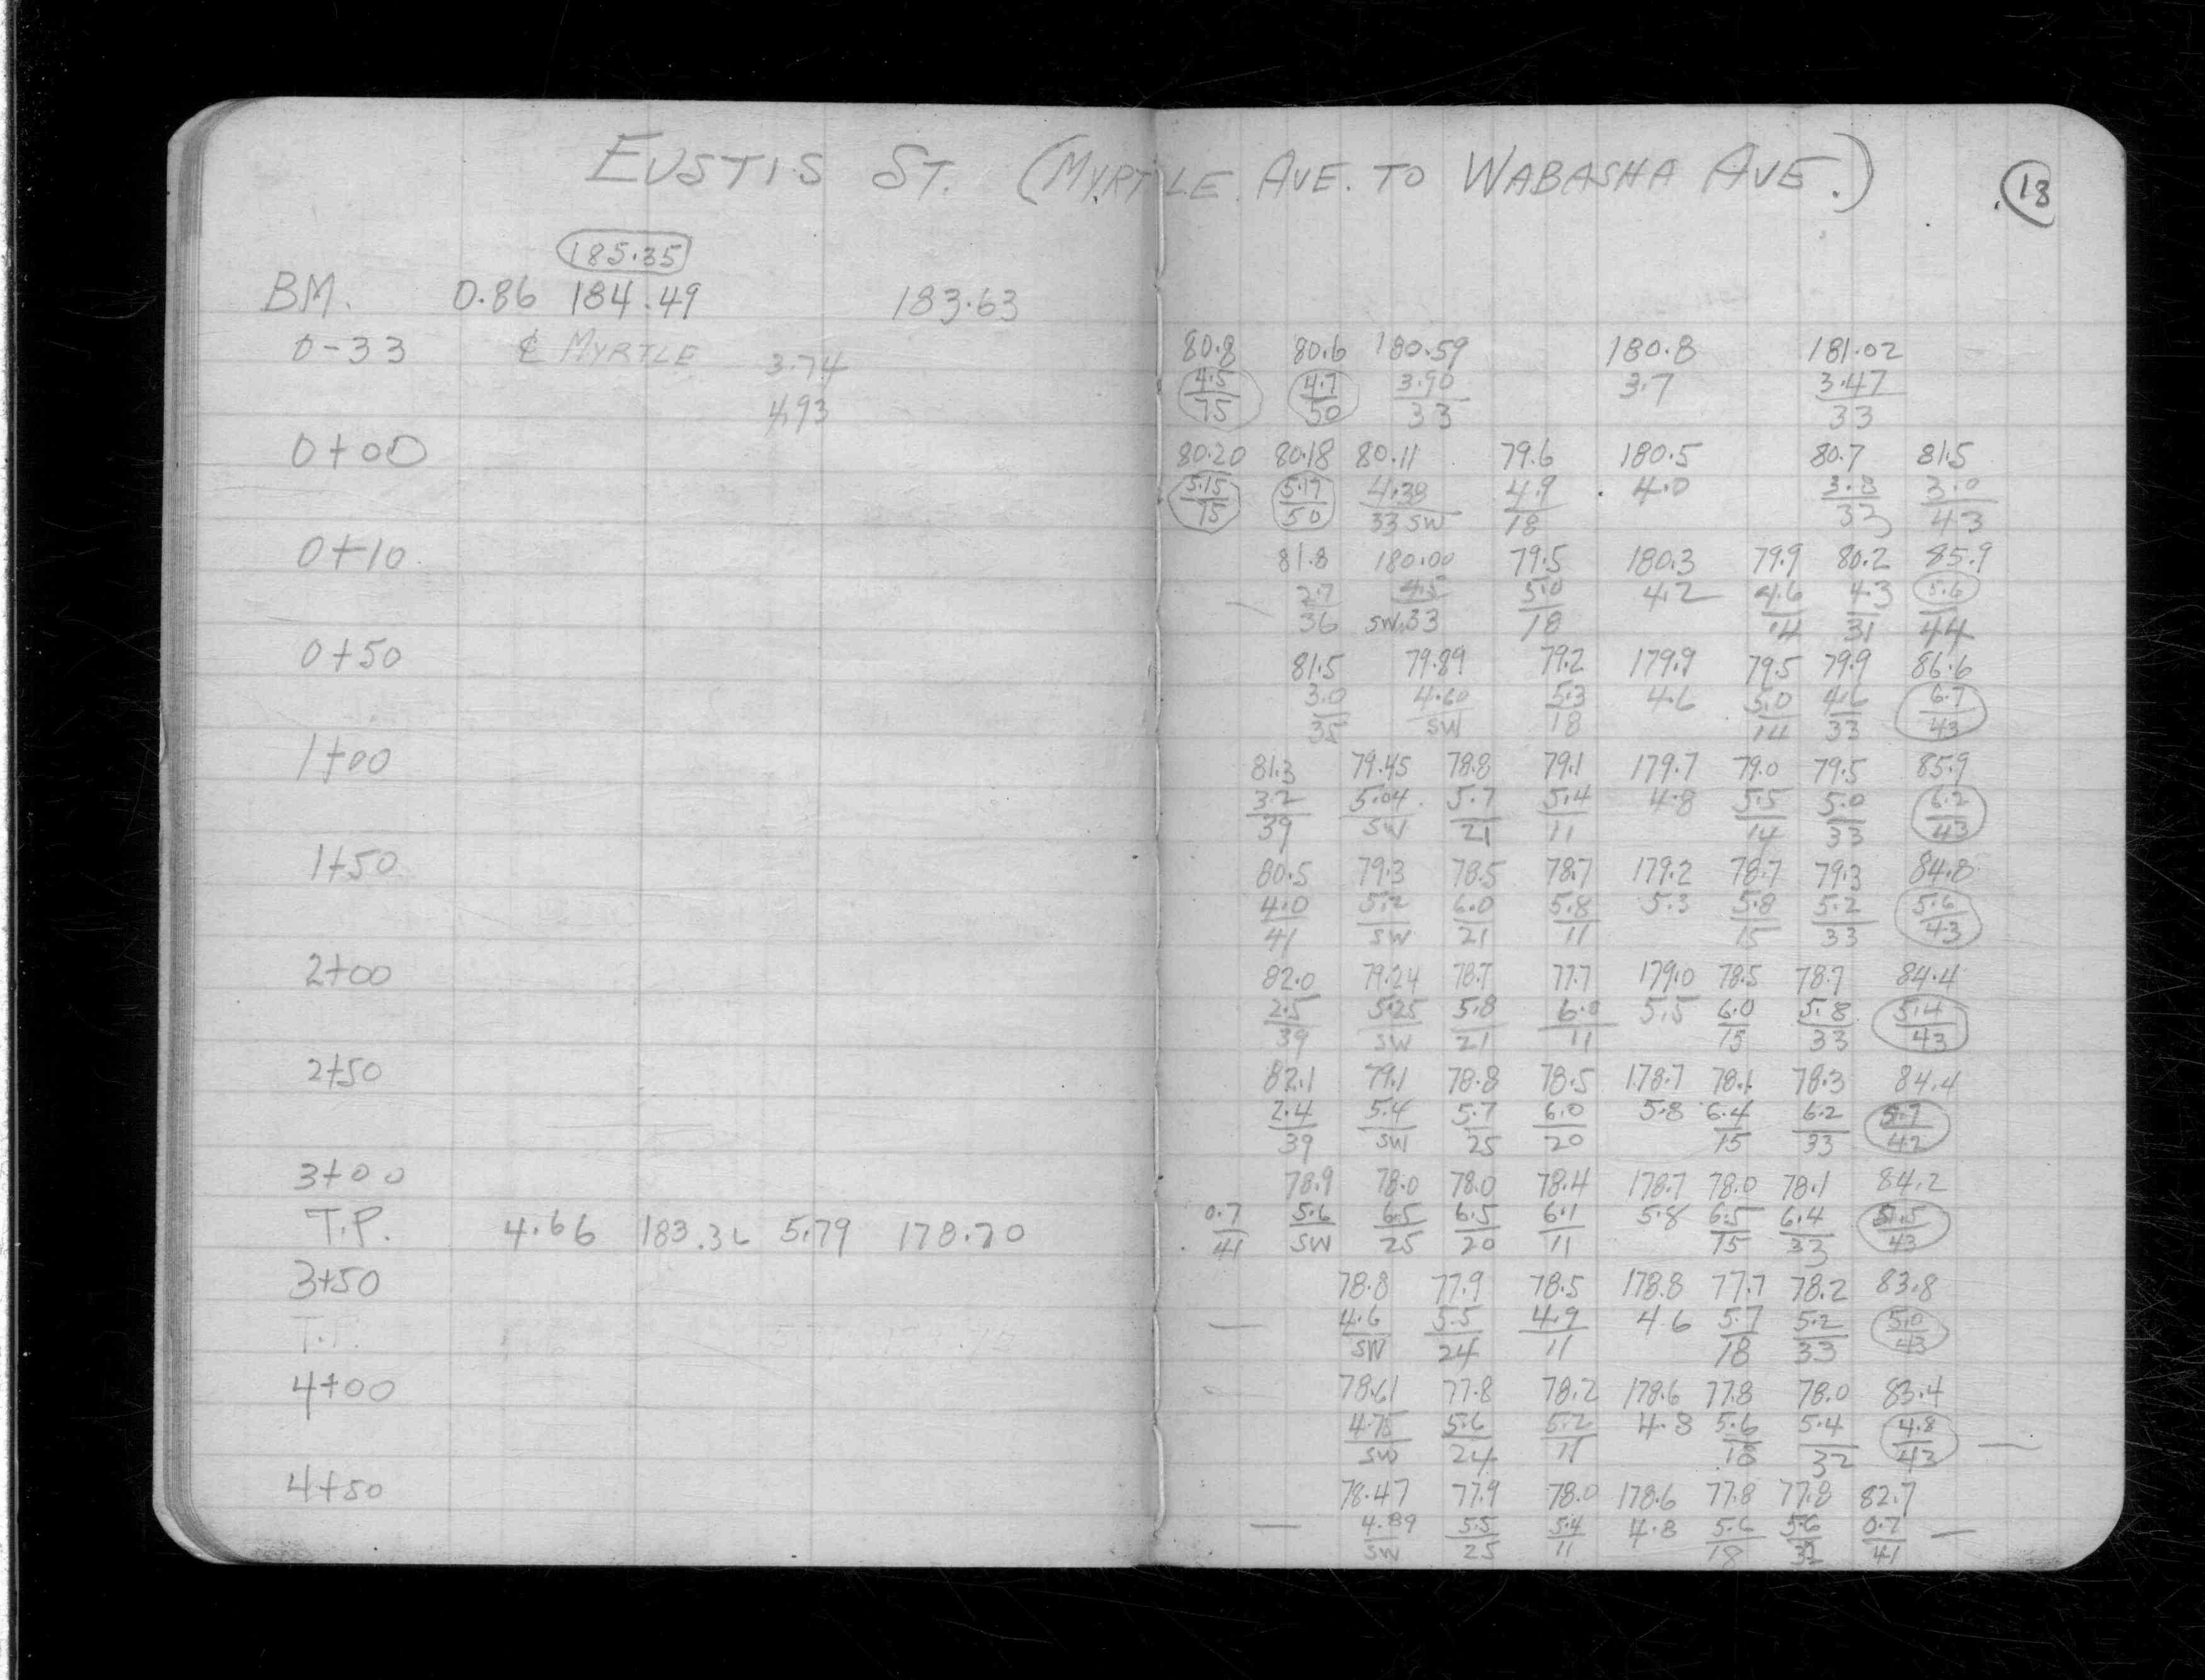 EUSTIS ST. (MYRTLE AVE. TO WABASHA AVE.)
13
185.35
BM. 0.86 184.49 183.63
0-33 ℄ MYRTLE 3.74 80.8 80.6 180.59 180.8 181.02
4.93 4.5/75 4.7/50 3.90/33 3.7 3.47/33
0+00 80.20 80.18 80.11 79.6 180.5 80.7 81.5
5.15/75 5.17/50 4.38/33 SW 4.9/18 4.0 3.8/33 3.0/43
0+10 81.8 180.00 79.5 180.3 79.9 80.2 85.9
— 2.7/36 4.5/SW.33 5.0/18 4.2 4.6/14 4.3/31 5.6/44
0+50 81.5 79.89 79.2 179.9 79.5 79.9 86.6
3.0/35 4.60/SW 5.3/18 4.6 5.0/14 4.6/33 6.7/43
1+00 81.3 79.45 78.8 79.1 179.7 79.0 79.5 85.9
3.2/39 5.04/SW 5.7/21 5.4/11 4.8 5.5/14 5.0/33 6.2/43
1+50 80.5 79.3 78.5 78.7 179.2 78.7 79.3 84.8
4.0/41 5.2/SW 6.0/21 5.8/11 5.3 5.8/15 5.2/33 5.6/43
2+00 82.0 79.24 78.7 77.7 179.0 78.5 78.7 84.4
2.5/39 5.25/SW 5.8/21 6.8/11 5.5 6.0/15 5.8/33 5.4/43
2+50 82.1 79.1 78.8 78.5 178.7 78.1 78.3 84.4
2.4/39 5.4/SW 5.7/25 6.0/20 5.8 6.4/15 6.2/33 5.7/42
3+00 78.9 78.0 78.0 78.4 178.7 78.0 78.1 84.2
T.P. 4.66 183.36 5.79 178.70 0.7/41 5.6/SW 6.5/25 6.5/20 6.1/11 5.8 6.5/15 6.4/33 5.5/43
3+50 78.8 77.9 78.5 178.8 77.7 78.2 83.8
T.P. — 4.6/SW 5.5/24 4.9/11 4.6 5.7/18 5.2/33 5.0/43
4+00 78.61 77.8 78.2 178.6 77.8 78.0 83.4
4.75/SW 5.6/24 5.2/11 4.8 5.6/18 5.4/32 4.8/43 —
4+50 78.47 77.9 78.0 178.6 77.8 77.8 82.7
— 4.89/SW 5.5/25 5.4/11 4.8 5.6/18 5.6/32 0.7/41 —